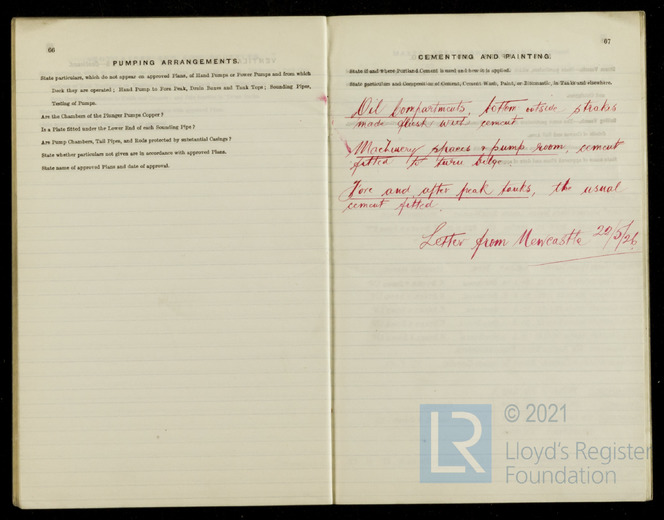 66
PUMPING ARRANGEMENTS.
State particulars, which do not appear on approved Plans, of Hand Pumps or Power Pumps and from which
Deck they are operated; Hand Pump to Fore Peak, Drain Boxes and Tank Tops; Sounding Pipes,
Testing of Pumps.
Are the Chambers of the Plunger Pumps Copper?
Is a Plate fitted under the Lower End of each Sounding Pipe?
Are Pump Chambers, Tail Pipes, and Rods protected by substantial Casings?
State whether particulars not given are in accordance with approved Plans.
State name of approved Plans and date of approval.
67
CEMENTING AND PAINTING.
State if and where Portland Cement is used and how it is applied.
State particulars and Composition of Cement, Cement-Wash, Paint, or Bitumastic, in Tanks and elsewhere.
Oil Compartments, bottom outside strakes
made flush with cement
Machinery spaces & pump room, cement
fitted to turn bilge
Fore and after peak tanks, the usual
cement fitted.
Letter from Newcastle 20/5/26
LR
© 2021
Lloyd's Register
Foundation